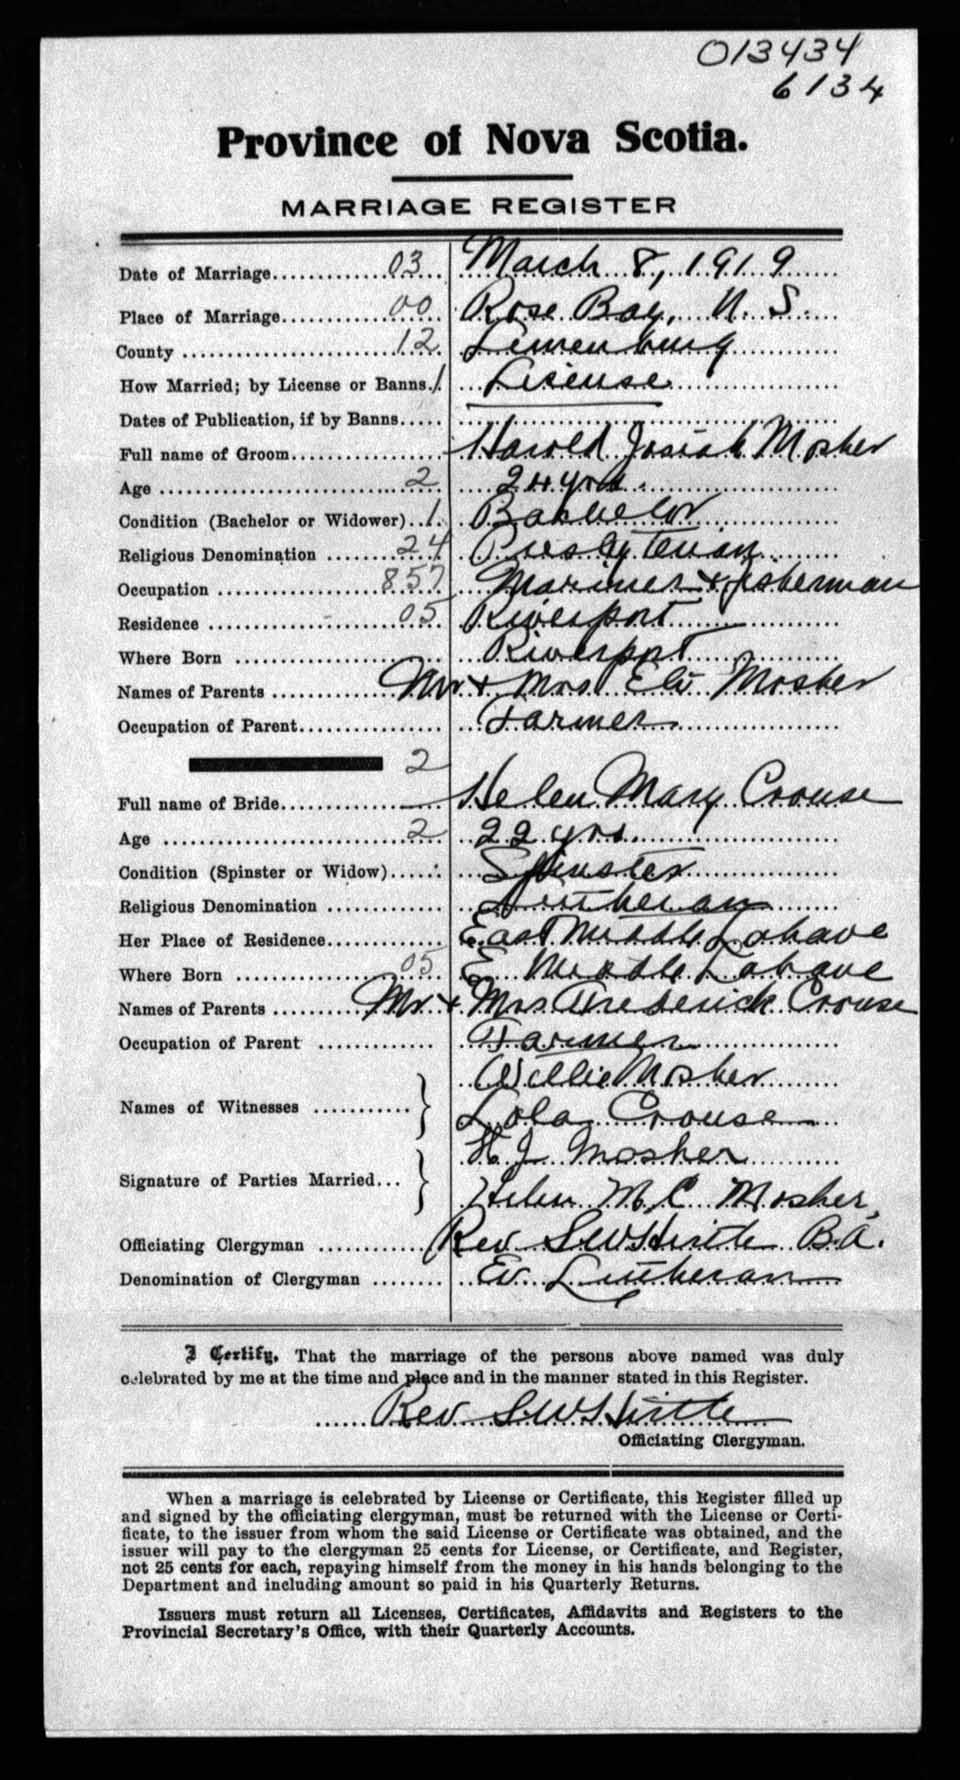 013434
6134
Province of Nova Scotia.
MARRIAGE REGISTER
Date of Marriage............03.. March 8, 1919
Place of Marriage............00.. Rose Bay, N. S.
County ........................12.. Lunenburg
How Married; by License or Banns.1. License
Dates of Publication, if by Banns.....
Full name of Groom.................. Harold Josiah Mosher
Age ..............................2.. 24 yrs.
Condition (Bachelor or Widower)..1. Bachelor
Religious Denomination ........24 Presbyterian
Occupation ...................857 Mariner & fisherman
Residence ......................05 Riverport
Where Born ..................... Riverport
Names of Parents ............ Mr & Mrs Eli Mosher
Occupation of Parent................. Farmer
2
Full name of Bride................ Helen Mary Crouse
Age ............................2 22 yrs.
Condition (Spinster or Widow)..... Spinster
Religious Denomination ........... Lutheran
Her Place of Residence............. East Middle Lahave
Where Born ...................05 E. Middle Lahave
Names of Parents .......... Mr & Mrs Frederick Crouse
Occupation of Parent ............. Farmer
Names of Witnesses ........... } Willie Mosher
Lola Crouse
Signature of Parties Married... } H J Mosher
Helen M. C. Mosher,
Officiating Clergyman ........... Rev S W Hirtle B.A.
Denomination of Clergyman ........ Ev. Lutheran
I Certify, That the marriage of the persons above named was duly
celebrated by me at the time and place and in the manner stated in this Register.
Rev S W Hirtle
Officiating Clergyman.
When a marriage is celebrated by License or Certificate, this Register filled up
and signed by the officiating clergyman, must be returned with the License or Certi-
ficate, to the issuer from whom the said License or Certificate was obtained, and the
issuer will pay to the clergyman 25 cents for License, or Certificate, and Register,
not 25 cents for each, repaying himself from the money in his hands belonging to the
Department and including amount so paid in his Quarterly Returns.
Issuers must return all Licenses, Certificates, Affidavits and Registers to the
Provincial Secretary's Office, with their Quarterly Accounts.